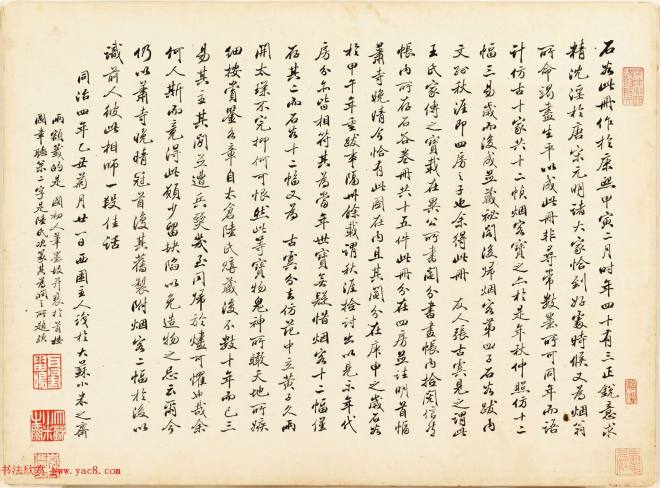 石谷此冊作於康熙甲寅二月時年四十有三正銳意求
精沈浸於唐宋元明諸大家恰到好處時候又為烟翁
所命竭盡生平以成此冊非尋常數墨所可同年而語
計仿古十家共十二幀烟客寶之亦於是年秋仲照仿十二
幅三易歲而後成並藏祕閣後歸烟客第四子石谷跋內
文孫秋涯即四房之子也余得此冊 友人張古寅見之謂此
王氏家傳之寶載在異公所書鬮分書畫帳內拾閱信然
帳內所存石谷卷冊共十五件此冊分在四房並註明首幅
蕭寺晚晴今恰有此圖在內且其鬮分在庚申之歲石谷
於甲午年重跋事隔卅餘載謂秋涯檢討出以見示年代
房分亦皆相符其為當年世寶無疑惜烟客十二幅僅
存其二而石谷十二幅又為 古寅分去仿范中立黃子久兩
開太璞不完抑何可恨然此等寶物鬼神所瞰天地所嫉
細按賞鑒各章自太倉陸氏 藏後不數十年而已三
易其主其間並遭兵燹幾至同歸於燼可懼也哉余
何人斯而竟得此願少留缺陷以免造物之忌云爾今
仍以蕭寺晚晴冠首復其舊製附烟客二幅於後以
識前人彼此相師一段佳話
同治四年乙丑菊月廿一日西圃主人識於大蘇小米之齋
兩額籤的是國初人筆墨故并裝於首按
國華 業二字是陸氏决篆其為潤之所題歟
书法欣赏 www.yac8.com